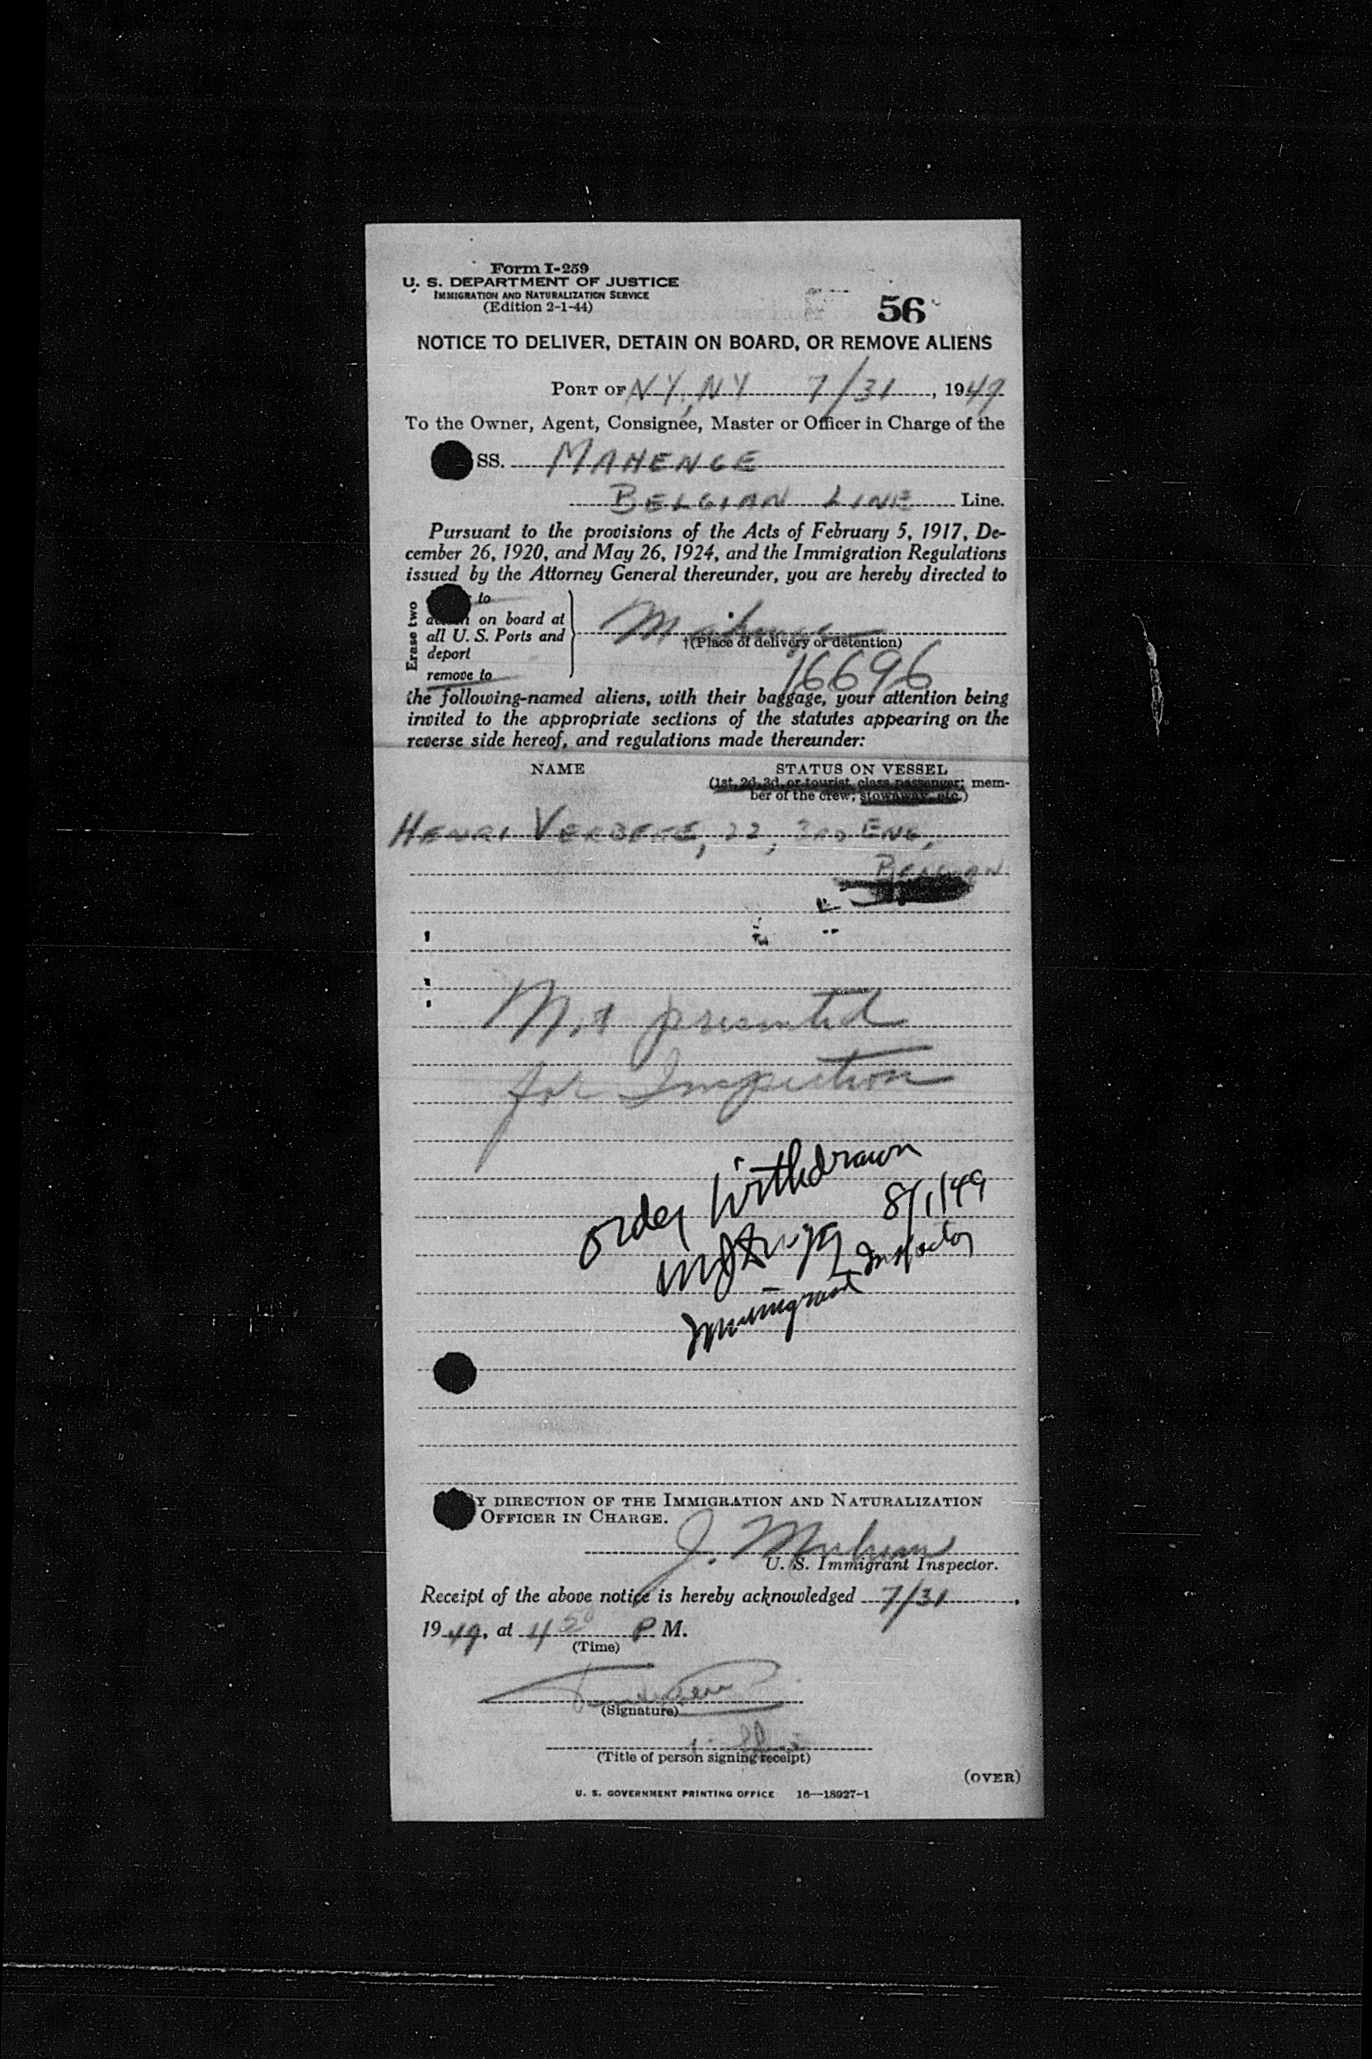 Form I-259
U. S. DEPARTMENT OF JUSTICE
IMMIGRATION AND NATURALIZATION SERVICE
(Edition 2-1-44)
56
NOTICE TO DELIVER, DETAIN ON BOARD, OR REMOVE ALIENS
PORT OF NY, NY 7/31, 1949
To the Owner, Agent, Consignee, Master or Officer in Charge of the
SS. MAHENGE
BELGIAN LINE Line.
Pursuant to the provisions of the Acts of February 5, 1917, De-
cember 26, 1920, and May 26, 1924, and the Immigration Regulations
issued by the Attorney General thereunder, you are hereby directed to
Erase two
to
on board at
all U. S. Ports and
deport
remove to
Mahenge
†(Place of delivery or detention)
16696
the following-named aliens, with their baggage, your attention being
invited to the appropriate sections of the statutes appearing on the
reverse side hereof, and regulations made thereunder:
NAME STATUS ON VESSEL
(1st, 2d, 3d, or tourist class passenger; mem-
ber of the crew; stowaway, etc.)
HENRI 22, 3RD ENG,
BELGIAN
Not presented
for Inspection
order Withdrawn
8/1/49
Immigrant Inspector
BY DIRECTION OF THE IMMIGRATION AND NATURALIZATION
OFFICER IN CHARGE.
J.
U. S. Immigrant Inspector.
Receipt of the above notice is hereby acknowledged 7/31,
1949, at 4 50 P. M.
(Time)
(Signature)
(Title of person signing receipt)
(OVER)
U. S. GOVERNMENT PRINTING OFFICE 16—18927-1